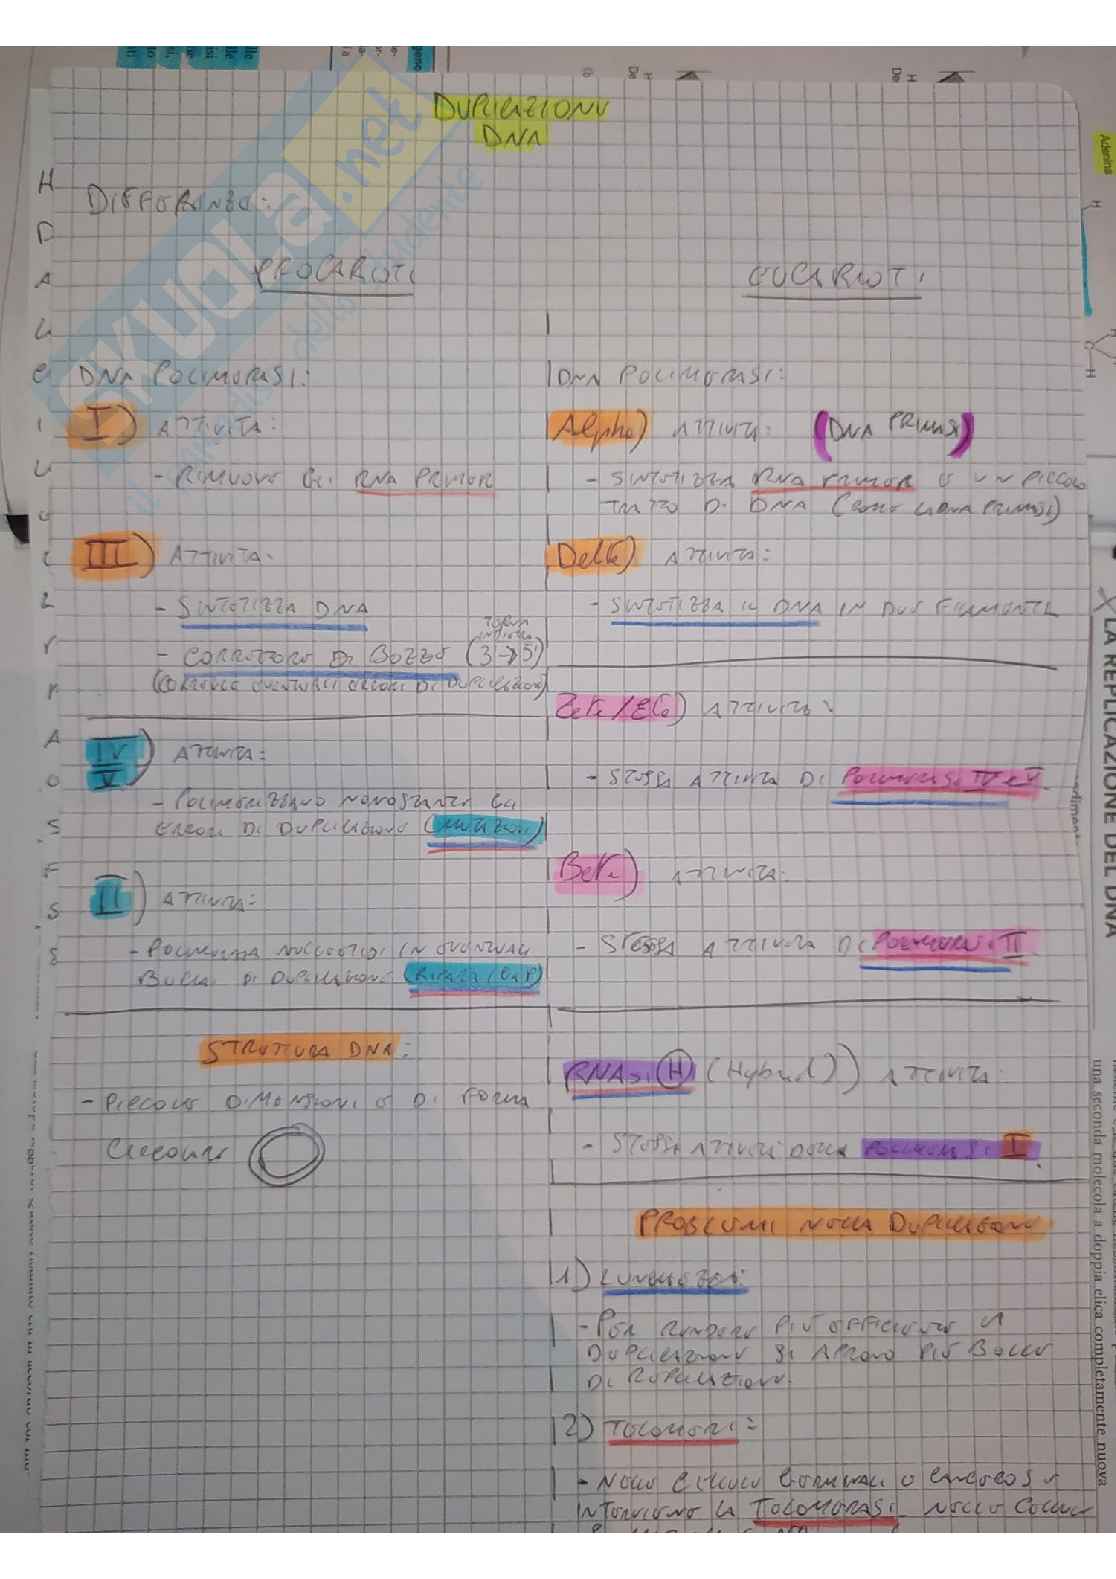 DUPLICAZIONE
DNA
DIFFERENZE:
PROCARIOTI
DNA POLIMERASI:
I) ATTIVITÀ:
- RIMUOVE GLI RNA PRIMER
III) ATTIVITÀ:
- SINTETIZZA DNA
- CORRETTORE DI BOZZE (3→5')
(CORREGGE EVENTUALI ERRORI DI DUPLICAZIONE)
IV
V) ATTIVITÀ:
- POLIMERIZZANO NONOSTANTE GLI
ERRORI DI DUPLICAZIONE (MUTAZIONI)
II) ATTIVITÀ:
- POLIMERIZZA NUCLEOTIDI IN EVENTUALI
DI DUPLICAZIONE (RIPARA I GAP)
STRUTTURA DNA:
- PICCOLE DIMENSIONI E DI FORMA
CIRCOLARE
EUCARIOTI
DNA POLIMERASI:
Alpha) ATTIVITÀ: (DNA PRIMASI)
- SINTETIZZA RNA PRIMER E UN PICCOLO
TRATTO DI DNA (COME PRIMASI)
Delta) ATTIVITÀ:
- SINTETIZZA IL DNA IN DUE FILAMENTI
Zeta/Eta) ATTIVITÀ:
- STESSA ATTIVITÀ DI POLIMERASI IV e V
Beta) ATTIVITÀ:
- STESSA ATTIVITÀ DI POLIMERASI II
RNAsi H (Hybrid)) ATTIVITÀ:
- STESSA ATTIVITÀ DELLA POLIMERASI I.
PROBLEMI NELLA DUPLICAZIONE
1) LUNGHEZZA:
- PER RENDERE PIÙ EFFICIENTE LA
DUPLICAZIONE SI APRONO PIÙ BOLLE
DI REPLICAZIONE
2) TELOMERI:
- NELLE CELLULE GERMINALI O
INTERVIENE LA TELOMERASI. NELLE CELLULE
X LA REPLICAZIONE DEL DNA
una seconda molecola a doppia elica completamente nuova
Adenina
SKUOLA.net